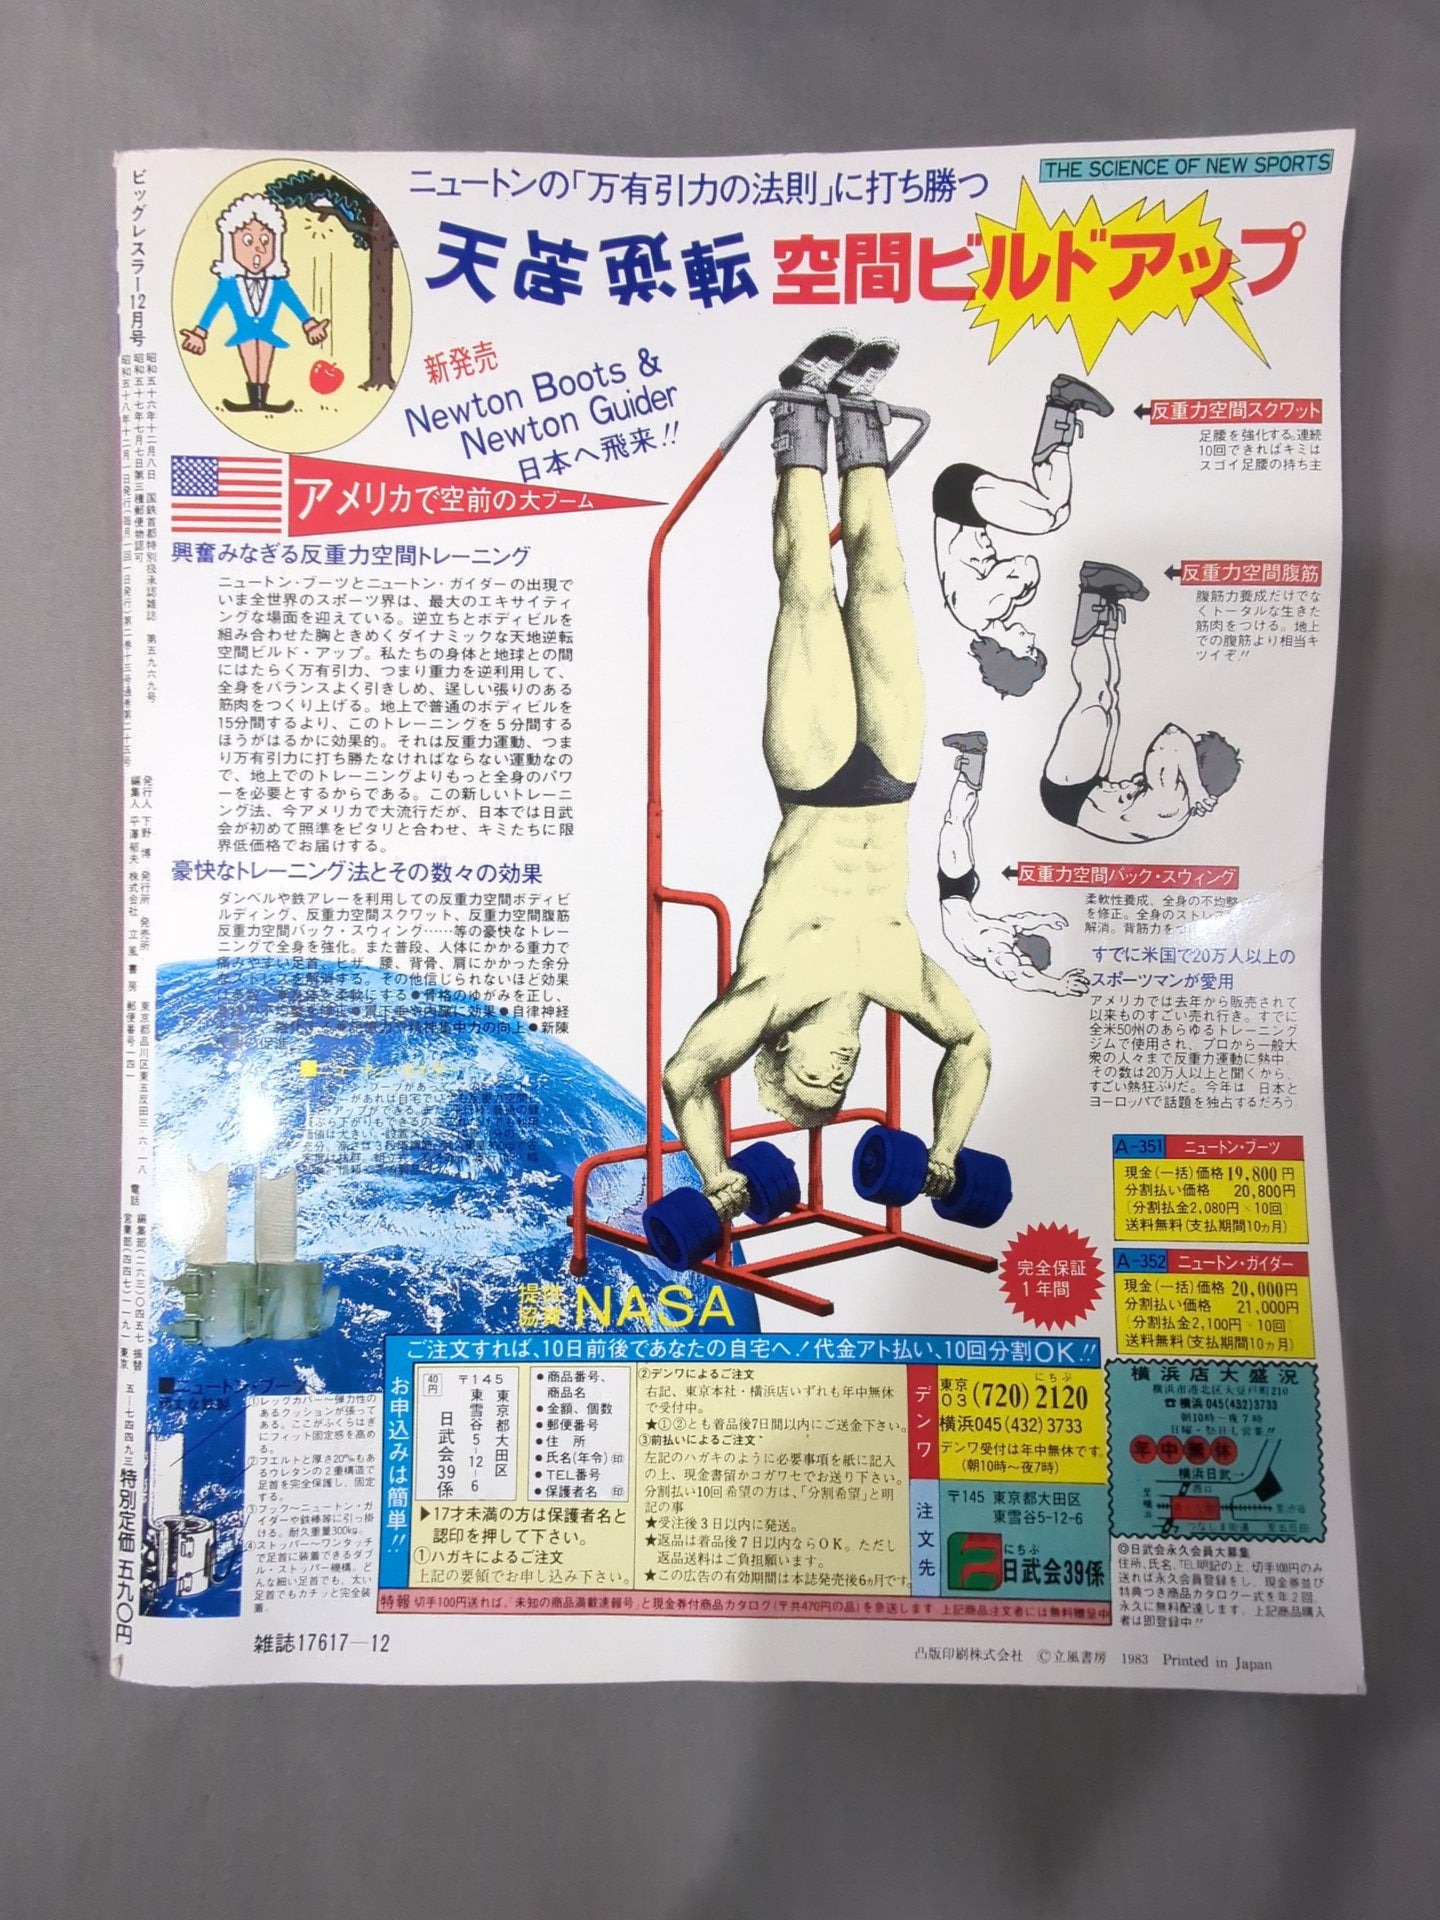 THE SCIENCE OF NEW SPORTS
ニュートンの「万有引力の法則」に打ち勝つ
天地逆転 空間ビルドアップ
新発売
Newton Boots &
Newton Guider
日本へ飛来!!
アメリカで空前の大ブーム
興奮みなぎる反重力空間トレーニング
ニュートン・ブーツとニュートン・ガイダーの出現で
いま全世界のスポーツ界は、最大のエキサイティ
ングな場面を迎えている。逆立ちとボディビルを
組み合わせた胸ときめくダイナミックな天地逆転
空間ビルド・アップ。私たちの身体と地球との間
にはたらく万有引力、つまり重力を逆利用して、
全身をバランスよく引きしめ、逞しい張りのある
筋肉をつくり上げる。地上で普通のボディビルを
15分間するより、このトレーニングを5分間する
ほうがはるかに効果的。それは反重力運動、つま
り万有引力に打ち勝たなければならない運動なの
で、地上でのトレーニングよりもっと全身のパワ
ーを必要とするからである。この新しいトレーニ
ング法、今アメリカで大流行だが、日本では日武
会が初めて照準をピタリと合わせ、キミたちに限
界低価格でお届けする。
豪快なトレーニング法とその数々の効果
ダンベルや鉄アレーを利用しての反重力空間ボディビ
ルディング、反重力空間スクワット、反重力空間腹筋
反重力空間バック・スウィング……等の豪快なトレー
ニングで全身を強化。また普段、人体にかかる重力で
痛みやすい足首、ヒザ、腰、背骨、肩にかかった余分
なストレスを解消する。その他信じられないほど効果
●骨格のゆがみを正し、
●胃下垂や内臓に効果●自律神経
集中力の向上●新陳
反重力空間スクワット
足腰を強化する。連続
10回できればキミは
スゴイ足腰の持ち主
反重力空間腹筋
腹筋力養成だけでな
くトータルな生きた
筋肉をつける。地上
での腹筋より相当キ
ツイぞ!!
反重力空間バック・スウィング
柔軟性養成、全身の不均整
を修正。全身のストレス
解消。背筋力を
すでに米国で20万人以上の
スポーツマンが愛用
アメリカでは去年から販売されて
以来ものすごい売れ行き。すでに
全米50州のあらゆるトレーニング
ジムで使用され、プロから一般大
衆の人々まで反重力運動に熱中。
その数は20万人以上と聞くから、
すごい熱狂ぶりだ。今年は 日本と
ヨーロッパで話題を独占するだろう
A-351 ニュートン・ブーツ
現金(一括)価格 19,800円
分割払い価格 20,800円
〔分割払金2,080円×10回〕
送料無料(支払期間10ヵ月)
A-352 ニュートン・ガイダー
現金(一括)価格 20,000円
分割払い価格 21,000円
〔分割払金2,100円×10回〕
送料無料(支払期間10ヵ月)
完全保証
1年間
提供
協賛 NASA
①レッグカバー〜弾力性の
あるクッションが張って
ある。ここがふくらはぎ
にフィット固定感を高め
る。
②フエルトと厚さ20%もあ
るウレタンの2重構造で
足首を完全保護し、固定
する。
③フック〜ニュートン・ガ
イダーや鉄棒等に引っ掛
ける。耐久重量300kg。
④ストッパー〜ワンタッチ
で足首に装着できるダブ
ル・ストッパー機構。ど
んな細い足首でも、太い
足首でもガチッと完全装
着。
ご注文すれば、10日前後であなたの自宅へ!代金アト払い、10回分割OK!!
お申込みは簡単!!
40円
〒145
東京都大田区
東雪谷5-12-6
日武会39係
●商品番号、
商品名
●金額、個数
●郵便番号
●住 所
●氏名(年令)㊞
●TEL番号
●保護者名 ㊞
▶17才未満の方は保護者名と
認印を押して下さい。
①ハガキによるご注文
上記の要領でお申し込み下さい。
②デンワによるご注文
右記、東京本社・横浜店いずれも年中無休
で受付中。
★①②とも着品後7日間以内にご送金下さい。
③前払いによるご注文
左記のハガキのように必要事項を紙に記入
の上、現金書留かコガワセでお送り下さい。
分割払い10回希望の方は、「分割希望」と明
記の事
★受注後3日以内に発送。
★返品は着品後7日以内ならOK。ただし
返品送料はご負担願います。
★この広告の有効期間は本誌発売後6ヵ月です。
デンワ
東京
03(720)2120
にちぶ
横浜045(432)3733
デンワ受付は年中無休です。
(朝10時〜夜7時)
注文先
〒145 東京都大田区
東雪谷5-12-6
にちぶ
日武会39係
横浜店大盛況
横浜市港北区大豆戸町210
☎横浜045(432)3733
朝10時〜夜7時
日曜・祭日も営業!!
年中無休
横浜日武
西口
至横浜
◎日武会永久会員大募集
住所、氏名、TEL明記の上、切手100円のみ
送れば永久会員登録をし、現金券並び
特典つき商品カタログ一式を年2回、
永久に無料配達します。上記商品購入
者は即登録中!!
特報 切手100円送れば、「未知の商品満載速報号」と現金券付商品カタログ(〒共470円の品)を急送します 上記商品注文者には無料贈呈中
雑誌17617-12
凸版印刷株式会社 ©立風書房 1983 Printed in Japan
ビッグレスラー12月号
昭和五十六年十二月八日 国鉄首都特別扱承認雑誌 第五九六九号
昭和五十七年七月七日第三種郵便物認可
昭和五十八年十二月一日発行(毎月一回一日発行)第二巻十三号通巻第二十五号
発行人 下野 博 発行所 発売所
編集人 平澤郁夫 株式会社 立風書房
東京都品川区東五反田三-六-一八
郵便番号一四一
電話 編集部(二六三)〇四五七 振替
営業部(四四七)一一九一 東京 五-七四四九三
特別定価 五九〇円